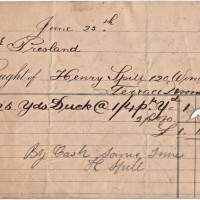 June 25th
Presland
ught of Henry Spill 120, Win
Terrace
Yds Duck @ 1/4 pr Yd 1
£ 1
By Cash Same Time
H Spill